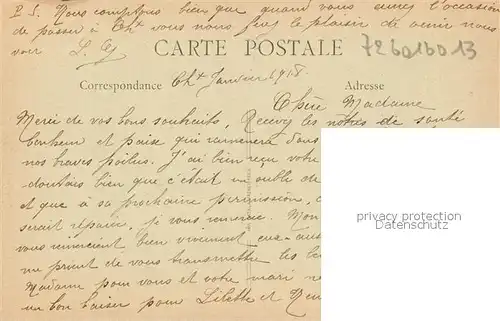 P.S. Nous comptons bien que quand vous aurez l'occasion
de passer à Cht vous nous ferez le plaisir de venir nous
voir
CARTE POSTALE
7260160 13
Correspondance
Cht Janvier 1918.
Adresse
Chère Madame
Merci de vos bons souhaits, Recevez les nôtres de santé
bonheur et paix qui ramènera dans
nos braves poilus. J'ai bien reçu votre
doutais bien que c'était un oubli de
et que à sa prochaine permission,
serait réparé, je vous remercie. Mon
vous remercient bien vivement eux-aus
me prient de vous transmettre les
Madame pour vous et votre mari
un bon baiser pour Lilette et
privacy protection
Datenschutz